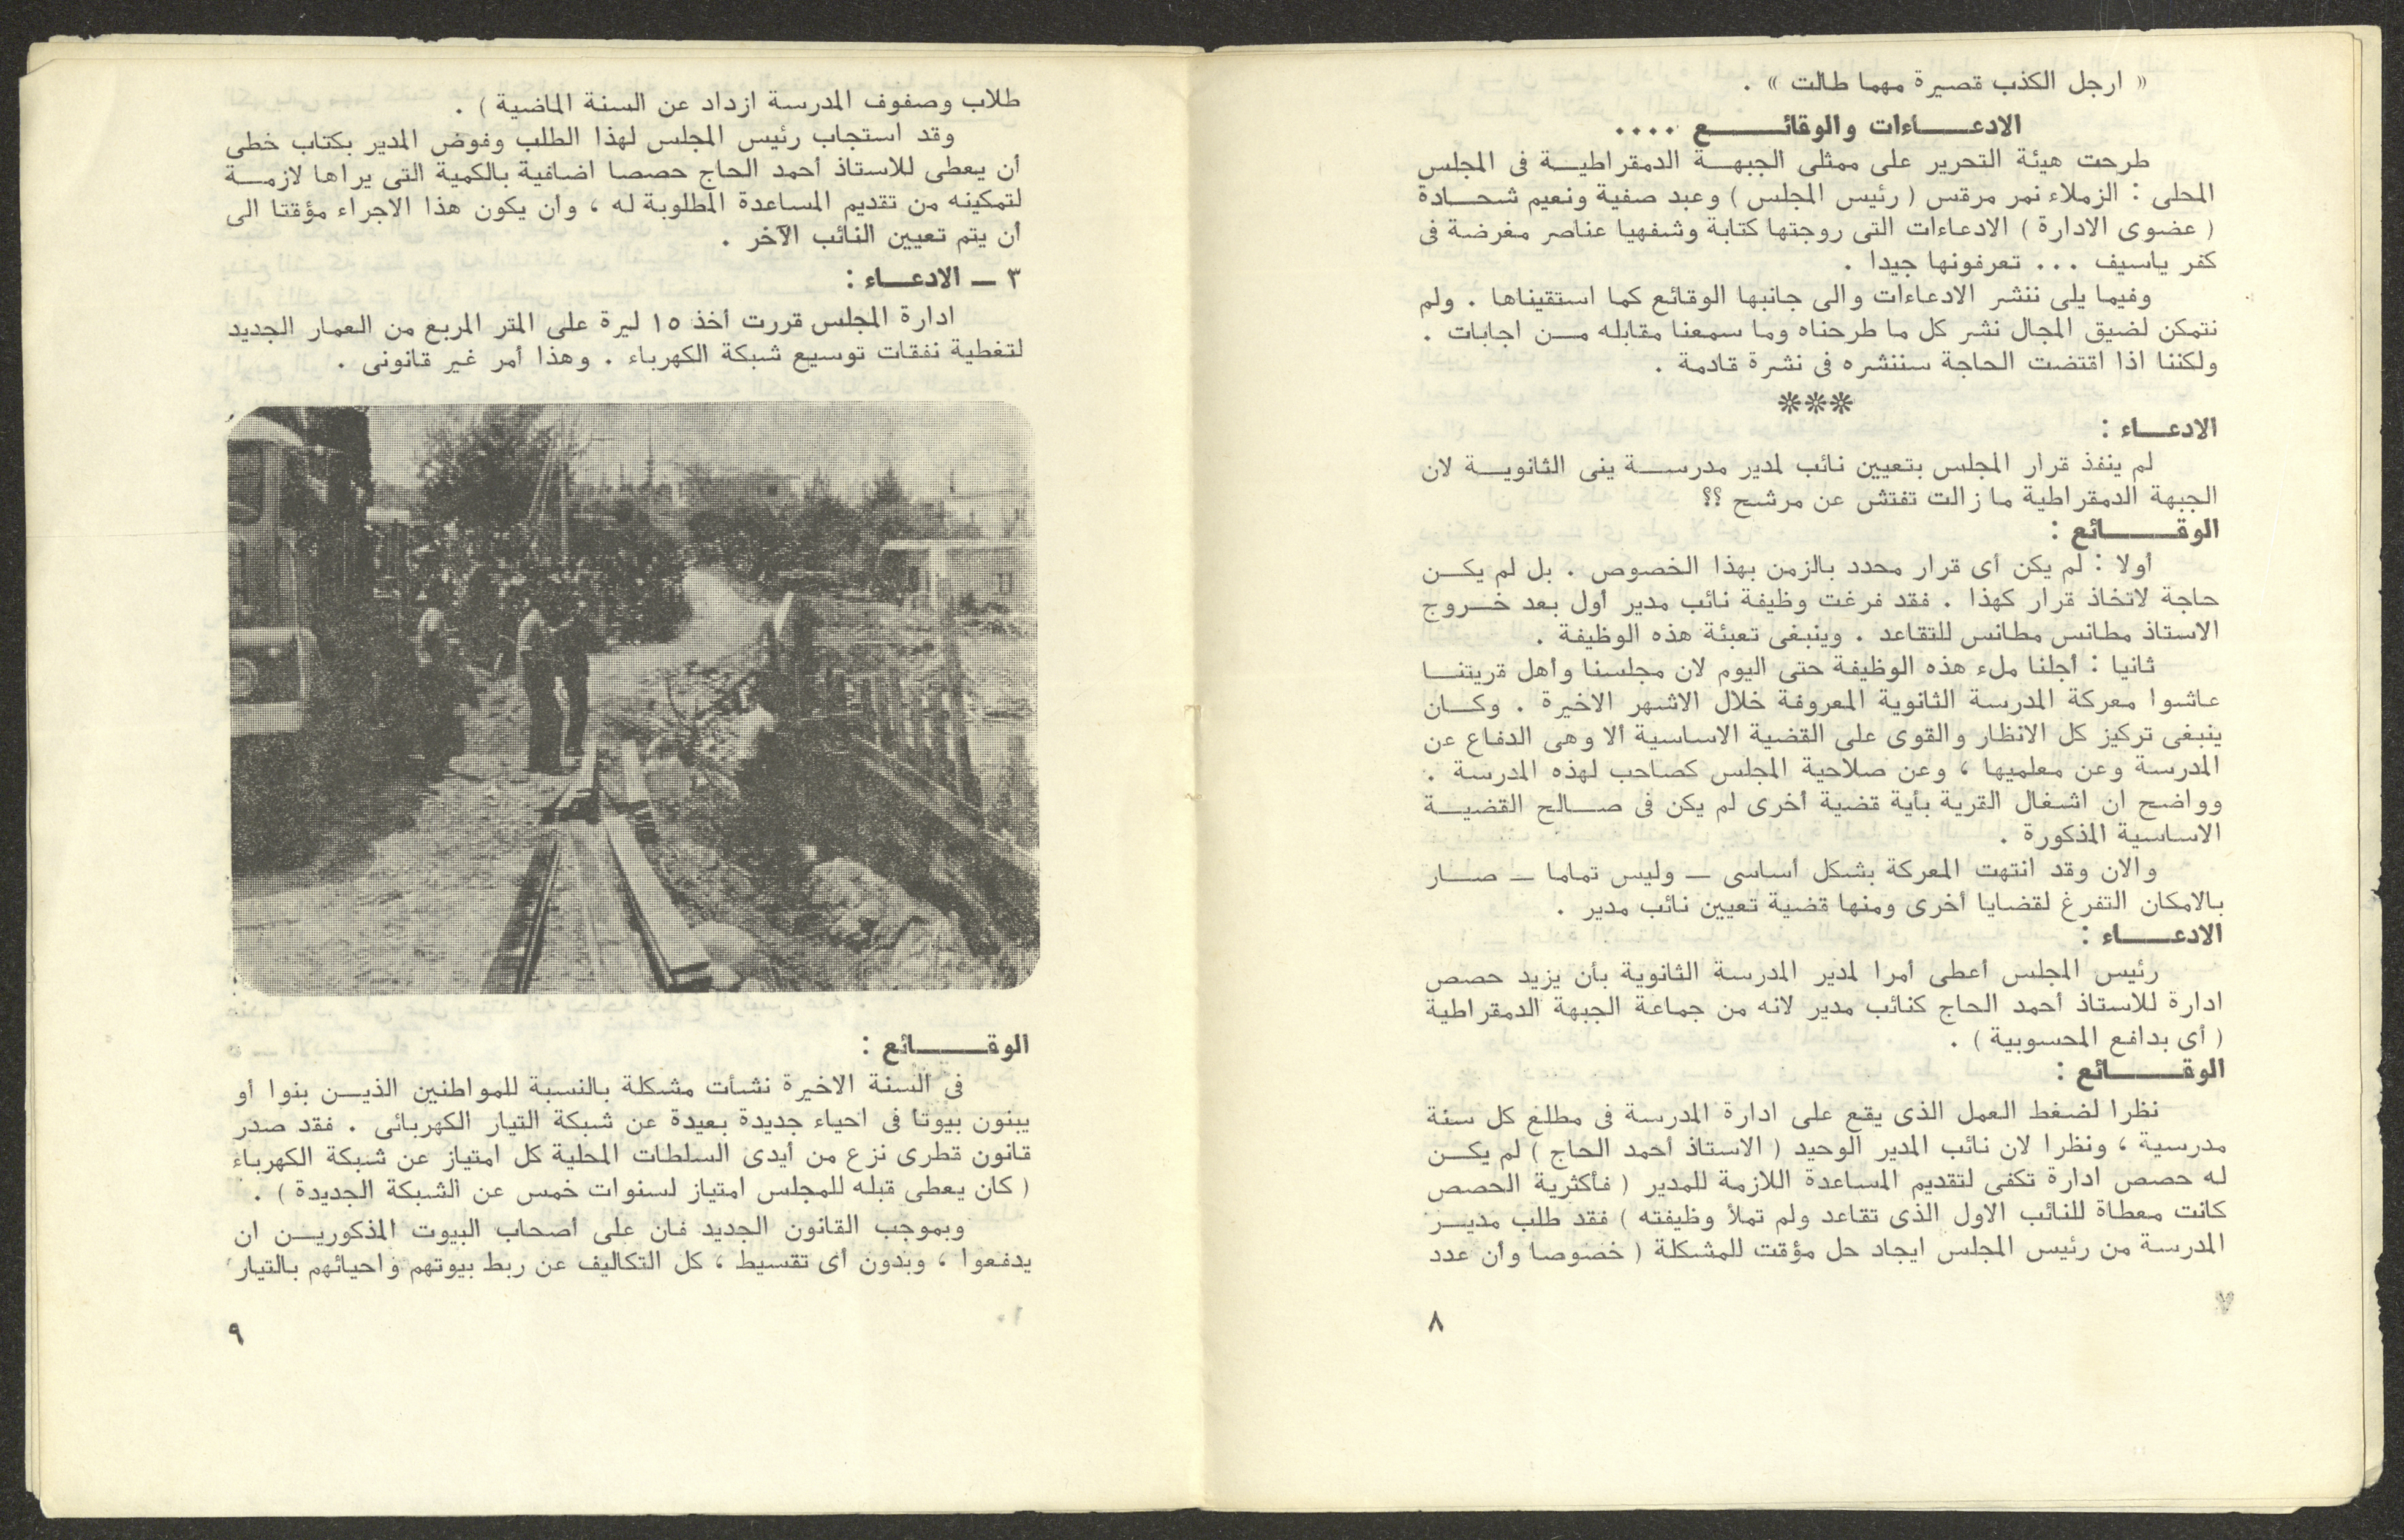 « ارجل الكذب قصيرة مهما طالت » .
الادعــــاءات والوقائـــــع ....
طرحت هيئة التحرير على ممثلى الجبهــة الدمقراطيــة فى المجلس
المحلى : الزملاء نمر مرقس ( رئيس المجلس ) وعبد صفية ونعيم شحــادة
( عضوى الادارة ) الادعاءات التى روجتها كتابة وشفهيا عناصر مغرضة فى
كفر ياسيف ... تعرفونها جيدا .
وفيما يلى ننشر الادعاءات والى جانبها الوقائع كما استقيناها . ولم
نتمكن لضيق المجال نشر كل ما طرحناه وما سمعنا مقابله مــن اجابات .
ولكننا اذا اقتضت الحاجة سننشره فى نشرة قادمة .
***
الادعـــاء :
لم ينفذ قرار المجلس بتعيين نائب لمدير مدرســـة ينى الثانويــة لان
الجبهة الدمقراطية ما زالت تفتش عن مرشح ؟؟
الوقـــــائع :
أولا : لم يكن أى قرار محدد بالزمن بهذا الخصوص . بل لم يكــن
حاجة لاتخاذ قرار كهذا . فقد فرغت وظيفة نائب مدير أول بعد خــروج
الاستاذ مطانس مطانس للتقاعد . وينبغى تعبئة هذه الوظيفة .
ثانيا : أجلنا ملء هذه الوظيفة حتى اليوم لان مجلسنا وأهل قريتنــا
عاشوا معركة المدرسة الثانوية المعروفة خلال الاشهر الاخيرة . وكــان
ينبغى تركيز كل الانظار والقوى على القضية الاساسية ألا وهى الدفاع عن
المدرسة وعن معلميها ، وعن صلاحية المجلس كصاحب لهذه المدرسة .
وواضح ان اشغال القرية بأية قضية أخرى لم يكن فى صــالح القضيــة
الاساسية المذكورة .
والان وقد انتهت المعركة بشكل أساسى — وليس تماما — صــار
بالامكان التفرغ لقضايا أخرى ومنها قضية تعيين نائب مدير .
الادعـــــاء :
رئيس المجلس أعطى أمرا لمدير المدرسة الثانوية بأن يزيد حصص
ادارة للاستاذ أحمد الحاج كنائب مدير لانه من جماعة الجبهة الدمقراطية
( أى بدافع المحسوبية ) .
الوقـــــائع :
نظرا لضغط العمل الذى يقع على ادارة المدرسة فى مطلع كل سنة
مدرسية ، ونظرا لان نائب المدير الوحيد ( الاستاذ أحمد الحاج ) لم يكــن
له حصص ادارة تكفى لتقديم المساعدة اللازمة للمدير ( فأكثرية الحصص
كانت معطاة للنائب الاول الذى تقاعد ولم تملأ وظيفته ) فقد طلب مديــر
المدرسة من رئيس المجلس ايجاد حل مؤقت للمشكلة ( خصوصا وأن عدد
٨
طلاب وصفوف المدرسة ازداد عن السنة الماضية ) .
وقد استجاب رئيس المجلس لهذا الطلب وفوض المدير بكتاب خطى
أن يعطى للاستاذ أحمد الحاج حصصا اضافية بالكمية التى يراها لازمــة
لتمكينه من تقديم المساعدة المطلوبة له ، وان يكون هذا الاجراء مؤقتا الى
أن يتم تعيين النائب الآخر .
٣ — الادعـــاء :
ادارة المجلس قررت أخذ ١٥ ليرة على المتر المربع من العمار الجديد
لتغطية نفقات توسيع شبكة الكهرباء . وهذا أمر غير قانونى .
الوقـــــائع :
فى السنة الاخيرة نشأت مشكلة بالنسبة للمواطنين الذيــن بنوا أو
يبنون بيوتا فى احياء جديدة بعيدة عن شبكة التيار الكهربائى . فقد صدر
قانون قطرى نزع من أيدى السلطات المحلية كل امتياز عن شبكة الكهرباء
( كان يعطى قبله للمجلس امتياز لسنوات خمس عن الشبكة الجديدة ) .
وبموجب القانون الجديد فان على أصحاب البيوت المذكوريــن ان
يدفعوا ، وبدون أى تقسيط ، كل التكاليف عن ربط بيوتهم واحيائهم بالتيار
٩